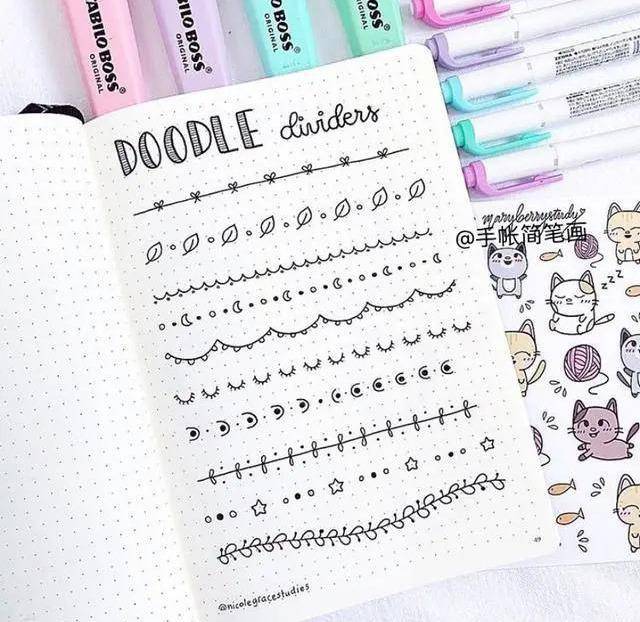 STABILO BOSS
ORIGINAL
STABILO BOSS
ORIGINAL
BOSS
ORIGINAL
DOODLE dividers
maryberrystudy
@手帐简笔画
zzz
49
@nicolegracestudies